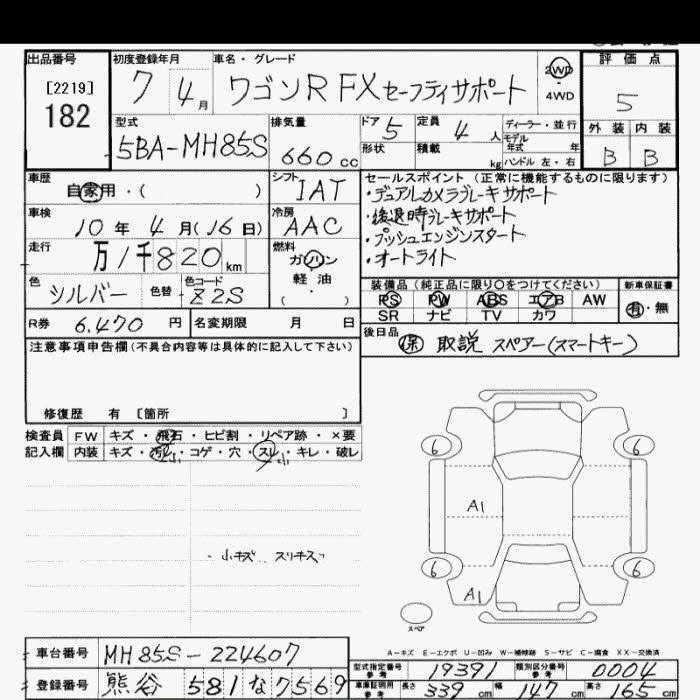 出品番号
[2219]
182
初度登録年月
7 4月
車名・グレード
ワゴンR FX セーフティサポート
2WD
・
4WD
評価点
5
外装 内装
B B
型式
5BA-MH85S
排気量
660 cc
ドア 5
形状
定員 4 人
積載 kg
ディーラー・並行
モデル年式 年
ハンドル 左・右
車歴
自家用・( )
シフト
IAT
車検
10年 4月(16日)
冷房
AAC
走行
万1千820km
燃料
ガソリン
軽油
( )
色
シルバー
色替
色コード
Z2S
R券 6,470 円
名変期限 月 日
セールスポイント(正常に機能するものに限ります)
・デュアルカメラブレーキサポート
・後退時ブレーキサポート
・プッシュエンジンスタート
・オートライト
装備品(純正品に限り○をつけてください)
PS PW ABS エアB AW
SR ナビ TV カワ
新車保証書
有・無
後日品
保 取説 スペアー(スマートキー)
注意事項申告欄(不具合内容等は具体的に記入して下さい)
修復歴 有 [箇所 ]
検査員
記入欄
FW キズ・飛石・ヒビ割・リペア跡・×要
内装 キズ・汚レ小・コゲ・穴・スレ小・キレ・破レ
・小キズ、スリキズ
6 6
A1
6 6
A1
スペア
A-キズ E-エクボ U-凹み W-補修跡 S-サビ C-腐食 XX-交換済
車台番号 MH85S-224607
登録番号 熊谷 581 な 7569
型式指定番号 参考 19391
類別区分番号 参考 0004
車庫証明用 参考 長さ 339 cm 幅 147 cm 高さ 165 cm